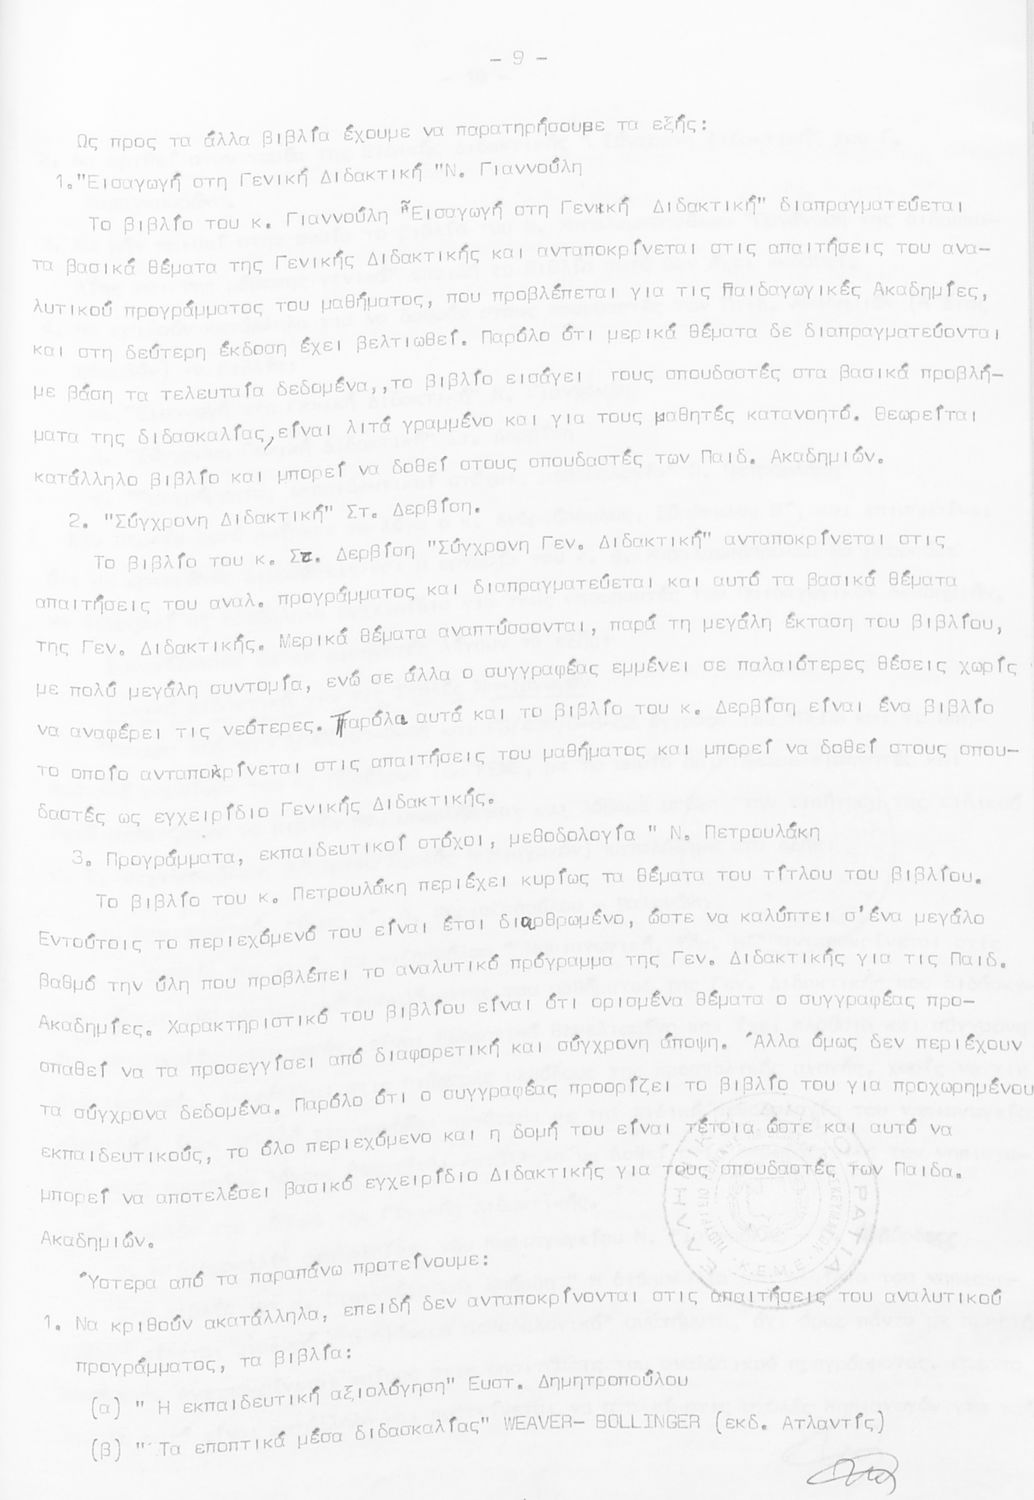 - 9 -
Ως προς τα άλλα βιβλία έχουμε να παρατηρήσουμε τα εξής:
1."Εισαγωγή στη Γενική Διδακτική "Ν. Γιαννούλη
Το βιβλίο του κ. Γιαννούλη "Εισαγωγή στη Γενική Διδακτική" διαπραγματεύεται
τα βασικά θέματα της Γενικής Διδακτικής και ανταποκρίνεται στις απαιτήσεις του ανα-
λυτικού προγράμματος του μαθήματος, που προβλέπεται για τις Παιδαγωγικές Ακαδημίες,
και στη δεύτερη έκδοση έχει βελτιωθεί. Παρόλο ότι μερικά θέματα δε διαπραγματεύονται
με βάση τα τελευταία δεδομένα,,το βιβλίο εισάγει τους σπουδαστές στα βασικά προβλή-
ματα της διδασκαλίας, είναι λιτά γραμμένο και για τους μαθητές κατανοητό. Θεωρείται
κατάλληλο βιβλίο και μπορεί να δοθεί στους σπουδαστές των Παιδ. Ακαδημιών.
2. "Σύγχρονη Διδακτική" Στ. Δερβίση.
Το βιβλίο του κ. Στ. Δερβίση "Σύγχρονη Γεν. Διδακτική" ανταποκρίνεται στις
απαιτήσεις του αναλ. προγράμματος και διαπραγματεύεται και αυτό τα βασικά θέματα
της Γεν. Διδακτικής. Μερικά θέματα αναπτύσσονται, παρά τη μεγάλη έκταση του βιβλίου,
με πολύ μεγάλη συντομία, ενώ σε άλλα ο συγγραφέας εμμένει σε παλαιότερες θέσεις χωρίς
να αναφέρει τις νεότερες. Παρόλα αυτά και το βιβλίο του κ. Δερβίση είναι ένα βιβλίο
το οποίο ανταποκρίνεται στις απαιτήσεις του μαθήματος και μπορεί να δοθεί στους σπου-
δαστές ως εγχειρίδιο Γενικής Διδακτικής.
3. Προγράμματα, εκπαιδευτικοί στόχοι, μεθοδολογία " Ν. Πετρουλάκη
Το βιβλίο του κ. Πετρουλάκη περιέχει κυρίως τα θέματα του τίτλου του βιβλίου.
Εντούτοις το περιεχόμενό του είναι έτσι διαρθρωμένο, ώστε να καλύπτει σ'ένα μεγάλο
βαθμό την ύλη που προβλέπει το αναλυτικό πρόγραμμα της Γεν. Διδακτικής για τις Παιδ.
Ακαδημίες. Χαρακτηριστικό του βιβλίου είναι ότι ορισμένα θέματα ο συγγραφέας προ-
σπαθεί να τα προσεγγίσει από διαφορετική και σύγχρονη άποψη. Άλλα όμως δεν περιέχουν
τα σύγχρονα δεδομένα. Παρόλο ότι ο συγγραφέας προορίζει το βιβλίο του για προχωρημένου
εκπαιδευτικούς, το όλο περιεχόμενο και η δομή του είναι τέτοια ώστε και αυτό να
μπορεί να αποτελέσει βασικό εγχειρίδιο Διδακτικής για τους σπουδαστές των Παιδα.
Ακαδημιών.
Ύστερα από τα παραπάνω προτείνουμε:
1. Να κριθούν ακατάλληλα, επειδή δεν ανταποκρίνονται στις απαιτήσεις του αναλυτικού
προγράμματος, τα βιβλία:
(α) " Η εκπαιδευτική αξιολόγηση" Ευστ. Δημητροπούλου
(β) " Τα εποπτικά μέσα διδασκαλίας" WEAVER- BOLLINGER (εκδ. Ατλαντίς)
Κ.Ε.Μ.Ε.